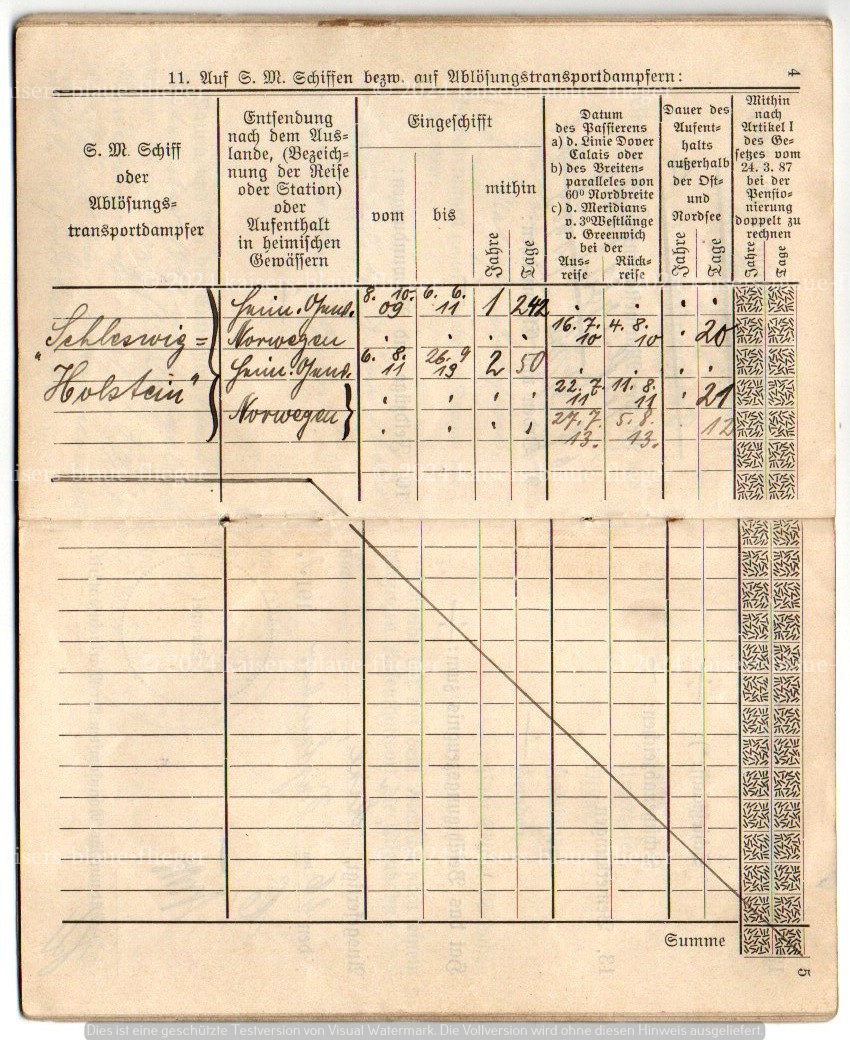 4
11. Auf S. M. Schiffen bezw. auf Ablösungstransportdampfern:
S. M. Schiff
oder
Ablösungs-
transportdampfer
Entsendung
nach dem Aus-
lande, (Bezeich-
nung der Reise
oder Station)
oder
Aufenthalt
in heimischen
Gewässern
Eingeschifft
vom
bis
mithin
Jahre
Tage
Datum
des Passierens
a) d. Linie Dover
Calais oder
b) des Breiten-
paralleles von
60º Nordbreite
c) d. Meridians
v. 3ºWestlänge
v. Greenwich
bei der
Aus-
reise
Rück-
reise
Dauer des
Aufent-
halts
außerhalb
der Ost-
und
Nordsee
Jahre
Tage
Mithin
nach
Artikel I
des Ge-
setzes vom
24. 3. 87
bei der
Pensio-
nierung
doppelt zu
rechnen
Jahre
Tage
„Schleswig=
Holstein“
Heim. Gew. 8. 10. 09 6. 6. 11 1 242 . . . .
Norwegen . . . . 16. 7. 10 4. 8. 10 . 20
Heim. Gew. 6. 8. 11 26. 9 13 2 50 . . . .
Norwegen . . . . 22. 7. 11 11. 8. 11 . 21
. . . . 27. 7. 13. 5. 8. 13. . 12
Summe
5
© 2024 kaisers-blaue-flieger
© 2024 kaisers-blaue-flieger
© 2024 kaisers-blaue-flieger
© 2024 kaisers-blaue-flieger
© 2024 kaisers-blaue-flieger
Dies ist eine geschützte Testversion von Visual Watermark. Die Vollversion wird ohne diesen Hinweis ausgeliefert.